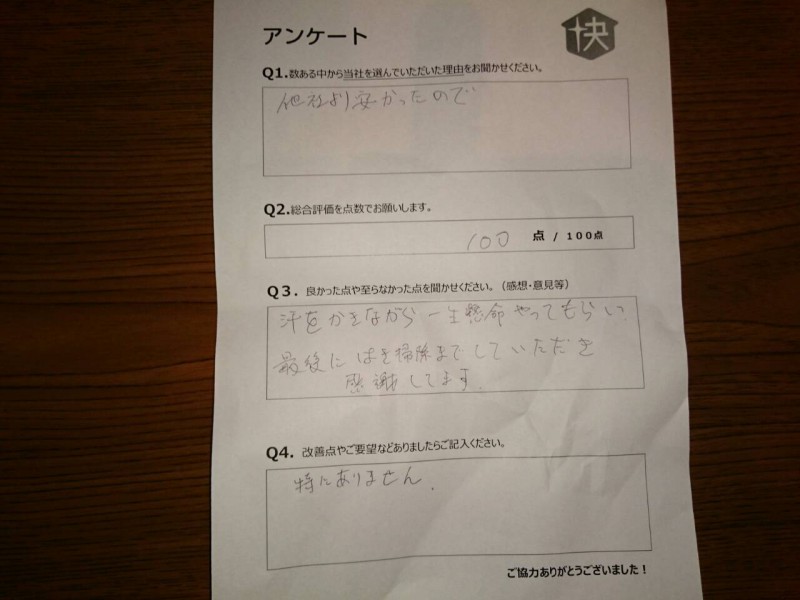 アンケート
快
Q1.数ある中から当社を選んでいただいた理由をお聞かせください。
他社より安かったので
Q2.総合評価を点数でお願いします。
100 点 / 100点
Q3. 良かった点や至らなかった点を聞かせください。（感想・意見等）
汗をかきながら一生懸命やってもらい
最後にはき掃除までしていただき
感謝してます.
Q4. 改善点やご要望などありましたらご記入ください。
特にありません.
ご協力ありがとうございました！